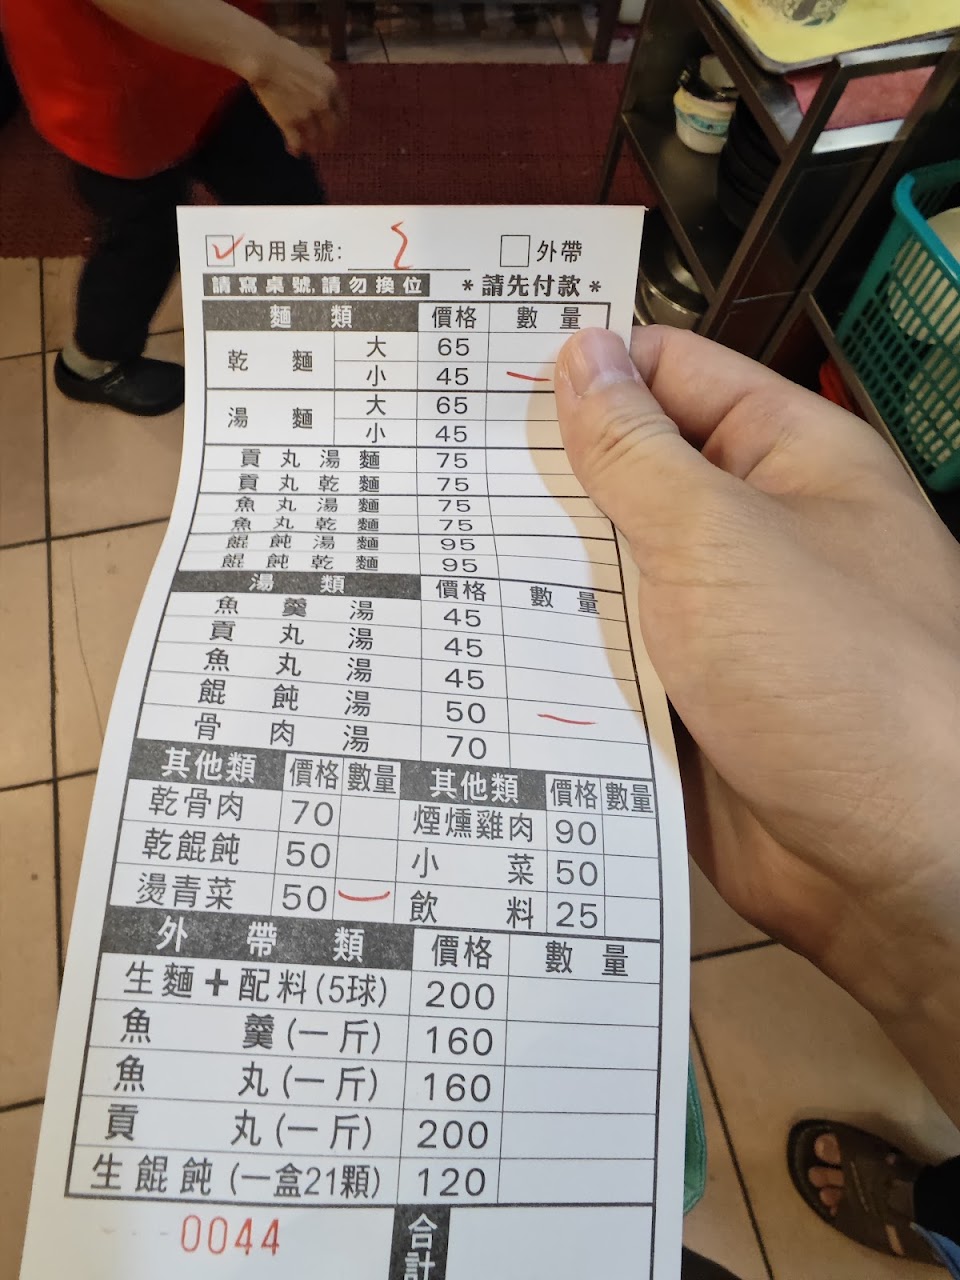 ✓ 內用桌號: 2 □ 外帶
請寫桌號,請勿換位 *請先付款*
麵類 價格 數量
乾麵 大 65
小 45 一
湯麵 大 65
小 45
貢丸湯麵 75
貢丸乾麵 75
魚丸湯麵 75
魚丸乾麵 75
餛飩湯麵 95
餛飩乾麵 95
湯類 價格 數量
魚羹湯 45
貢丸湯 45
魚丸湯 45
餛飩湯 50 一
骨肉湯 70
其他類 價格 數量 其他類 價格 數量
乾骨肉 70 煙燻雞肉 90
乾餛飩 50 小菜 50
燙青菜 50 一 飲料 25
外帶類 價格 數量
生麵+配料(5球) 200
魚羹(一斤) 160
魚丸(一斤) 160
貢丸(一斤) 200
生餛飩(一盒21顆) 120
0044 合計